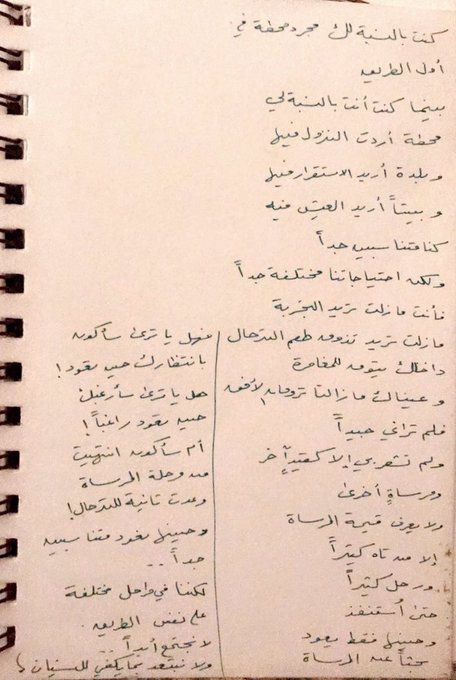 كنت بالنسبة لك مجرد محطة في
أول الطريق
بينما كنت أنت بالنسبة لي
محطة أردت النزول فيها
وبلدة أريد الاستقرار فيها
وبيتاً أريد العيش فيه
كنا متناسبين جداً
ولكن احتياجاتنا مختلفة جداً
فأنت ما زلت تريد التجربة
ما زلت تريد تذوق طعم الترحال
داخلك يتوق للمغامرة
وعيناك ما زالتا تتوقان لأفق
فلم تراني جيداً
ولم تشعر بي إلا كقيدٍ آخر
ومرساةٍ أخرى
ولا يعرف قيمة المرساة
إلا من تاه كثيراً
ورحل كثيراً
حتى أُستنفذ
وحينها فقط يعود
بحثاً عن المرساة
فهل يا ترى سأكون
بانتظارك حين تعود!
هل يا ترى سأرغبك
حين تعود راغباً!
أم سأكون انتهيت
من مرحلة المرساة
وعدت ثانية للترحال!
وحينها نعود متناسبين
جداً..
لكننا في مراحل مختلفة
على نفس الطريق
لا نجتمع أبداً..
ولا نبتعد بما يكفي للنسيان